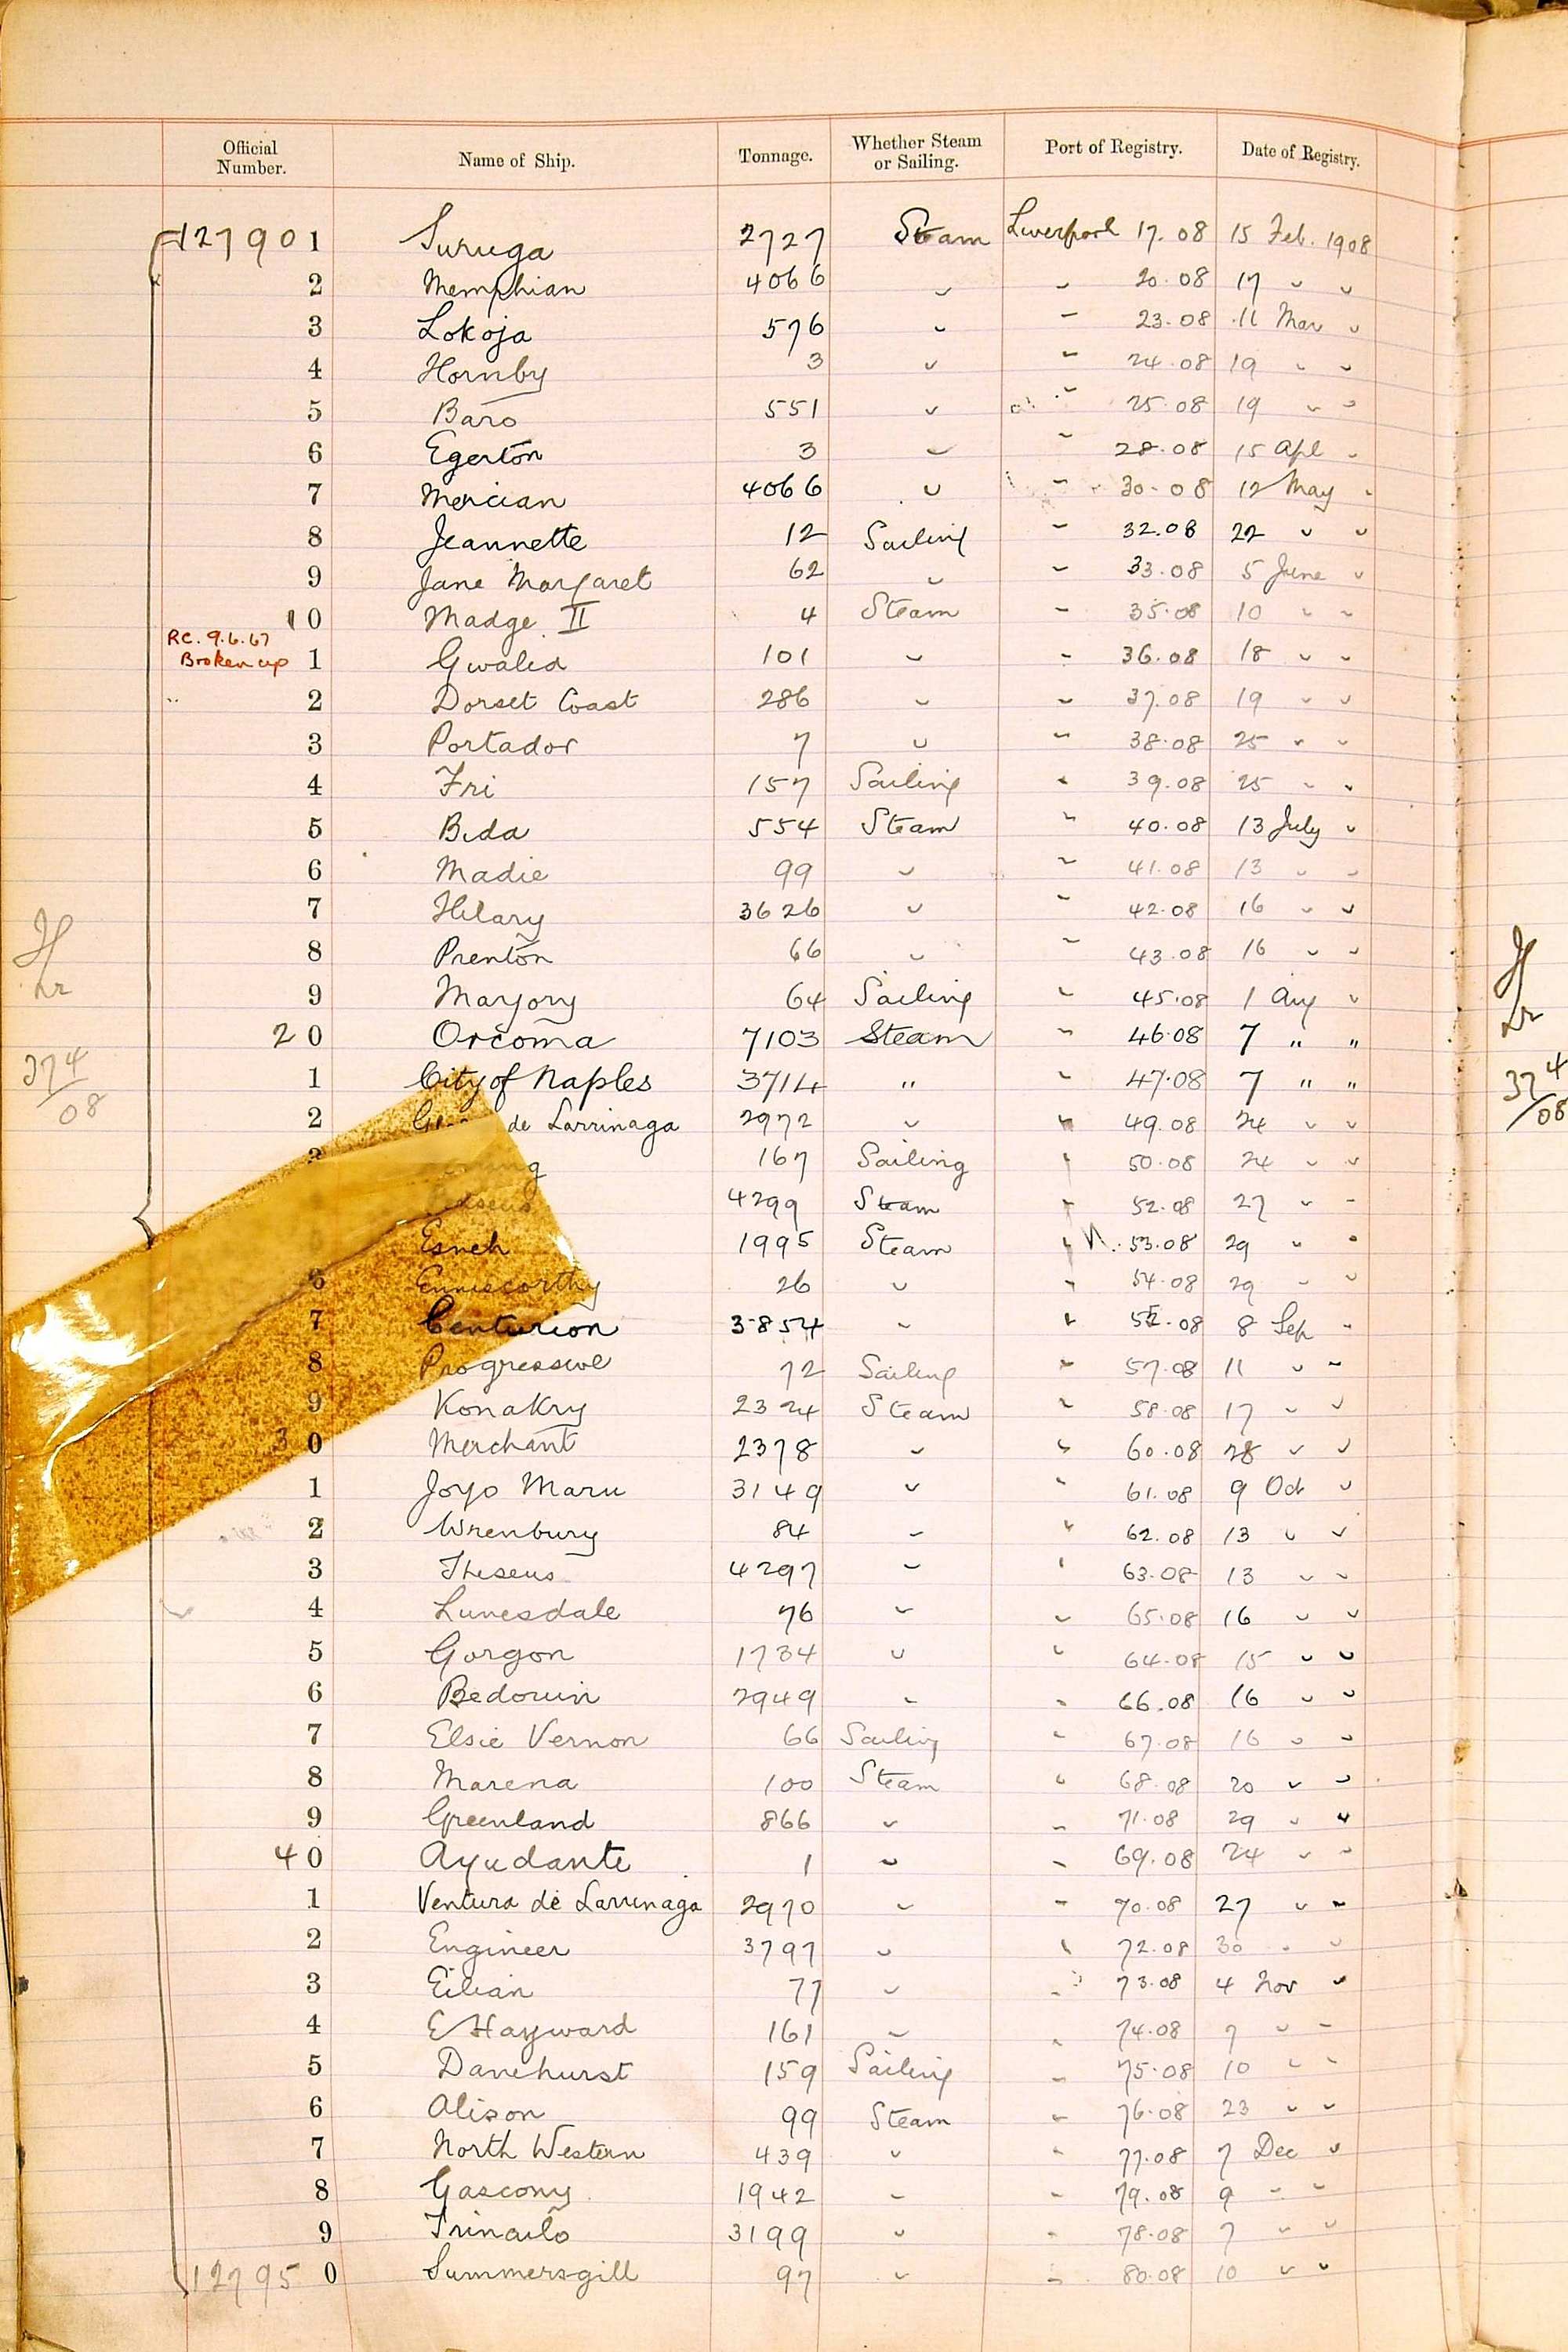 Official Number. Name of Ship. Tonnage. Whether Steam or Sailing. Port of Registry. Date of Registry.
127901 Suruga 2727 Steam Liverpool 17.08 15 Feb. 1908
2 Memphian 4066 " " 20.08 17 " "
3 Lokoja 576 " " 23.08 11 Mar "
4 Hornby 3 " " 24.08 19 " "
5 Baro 551 " " 25.08 19 " "
6 Egerton 3 " " 28.08 15 Apl "
7 Mercian 4066 " " 30.08 12 May "
8 Jeannette 12 Sailing " 32.08 22 " "
9 Jane Margaret 62 " " 33.08 5 June "
10 Madge II 4 Steam " 35.08 10 " "
RC. 9.6.67
Broken up 1 Gwalia 101 " " 36.08 18 " "
2 Dorset Coast 286 " " 37.08 19 " "
3 Portador 7 " " 38.08 25 " "
4 Fri 157 Sailing " 39.08 25 " "
5 Bida 554 Steam " 40.08 13 July "
6 Madie 99 " " 41.08 13 " "
7 Hilary 3626 " " 42.08 16 " "
8 Prenton 66 " " 43.08 16 " "
9 Marjory 64 Sailing " 45.08 1 Aug "
20 Orcoma 7103 Steam " 46.08 7 " "
374/08
1 City of Naples 3714 " " 47.08 7 " "
374/08
2 de Larrinaga 2972 " " 49.08 24 " "
167 Sailing " 50.08 24 " "
4299 Steam " 52.08 27 " "
Esneh 1995 Steam " N. 53.08 29 " "
6 Enniscorthy 26 " " 54.08 29 " "
7 Centurion 3854 " " 55.08 8 Sep "
8 Progressive 72 Sailing " 57.08 11 " "
9 Konakry 2324 Steam " 58.08 17 " "
30 Merchant 2378 " " 60.08 28 " "
1 Joyo Maru 3149 " " 61.08 9 Oct "
2 Wrenbury 84 " " 62.08 13 " "
3 Theseus 4297 " " 63.08 13 " "
4 Lunesdale 76 " " 65.08 16 " "
5 Gorgon 1734 " " 64.08 15 " "
6 Bedouin 2949 " " 66.08 16 " "
7 Elsie Vernon 66 Sailing " 67.08 16 " "
8 Marena 100 Steam " 68.08 20 " "
9 Greenland 866 " " 71.08 29 " "
40 Ayudante 1 " " 69.08 24 " "
1 Ventura de Larrinaga 2970 " " 70.08 27 " "
2 Engineer 3797 " " 72.08 30 " "
3 Eilian 77 " " 73.08 4 Nov "
4 E Hayward 161 " " 74.08 7 " "
5 Danehurst 159 Sailing " 75.08 10 " "
6 Alison 99 Steam " 76.08 23 " "
7 North Western 439 " " 77.08 7 Dec "
8 Gascony 1942 " " 79.08 9 " "
9 Trinculo 3199 " " 78.08 7 " "
127950 Summersgill 97 " " 80.08 10 " "